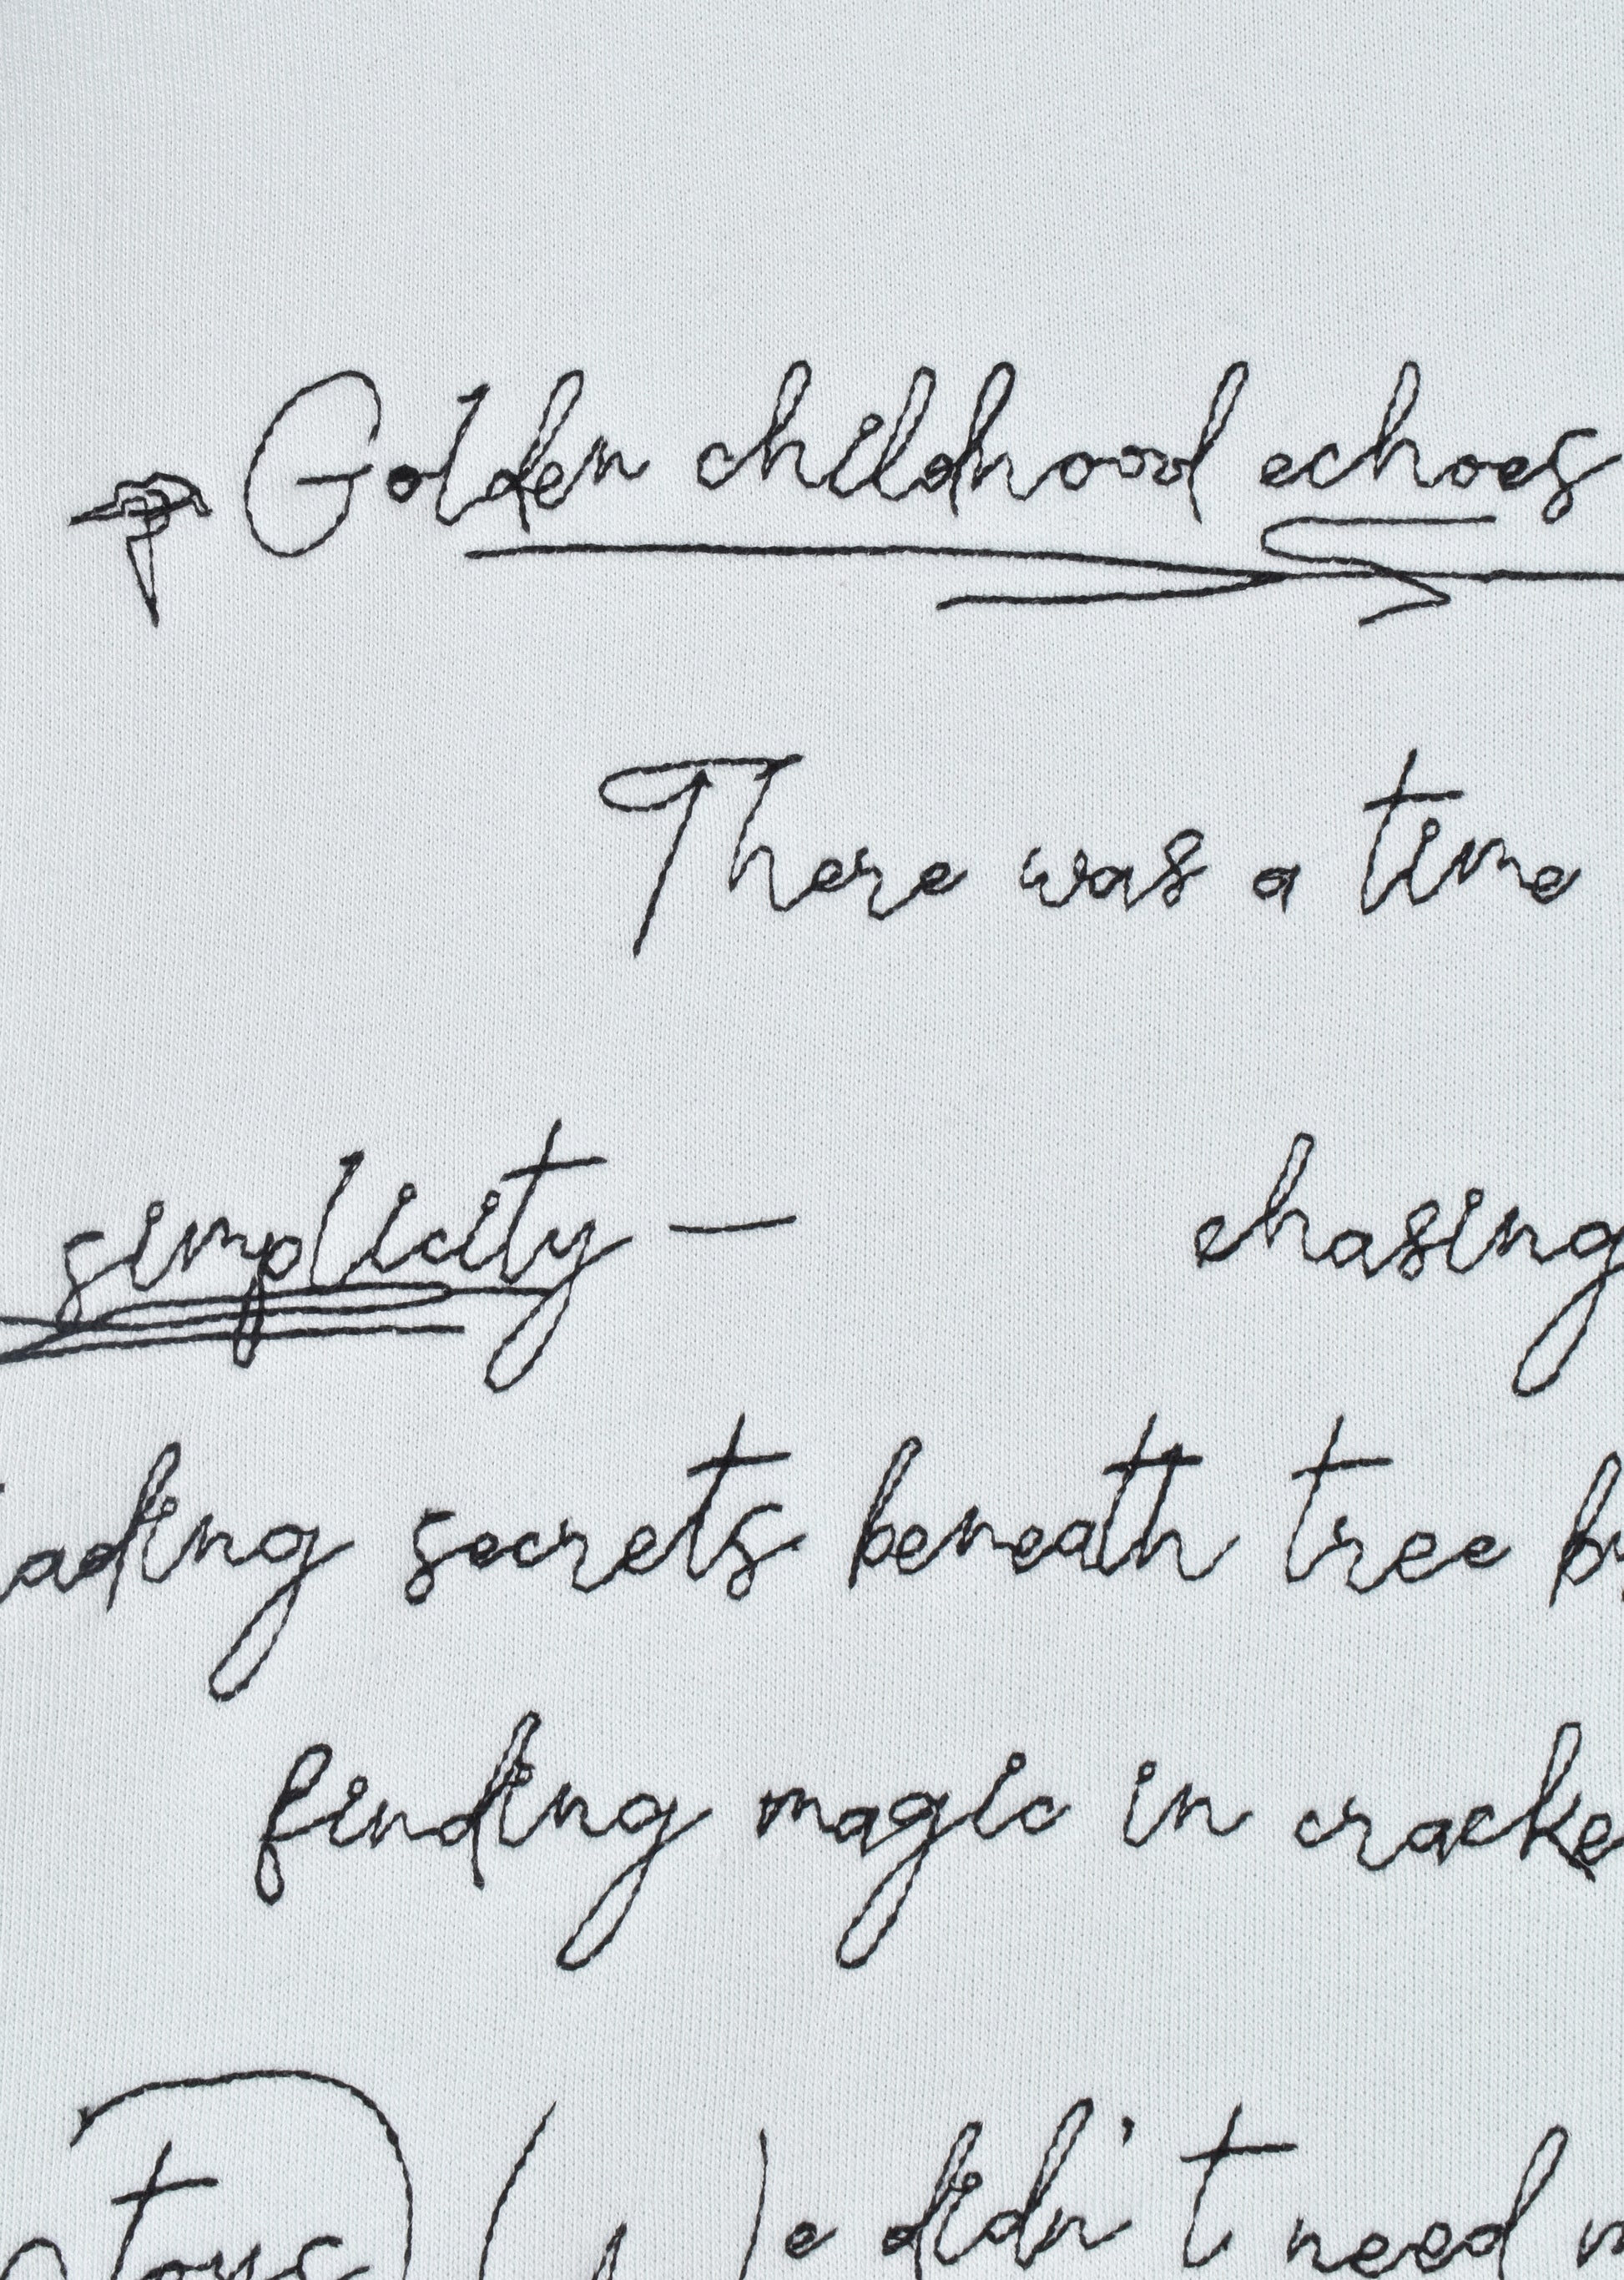 Golden childhood echoes
There was a time
simplicity — chasing
ading secrets beneath tree
finding magic in cracke
toys We didn't need